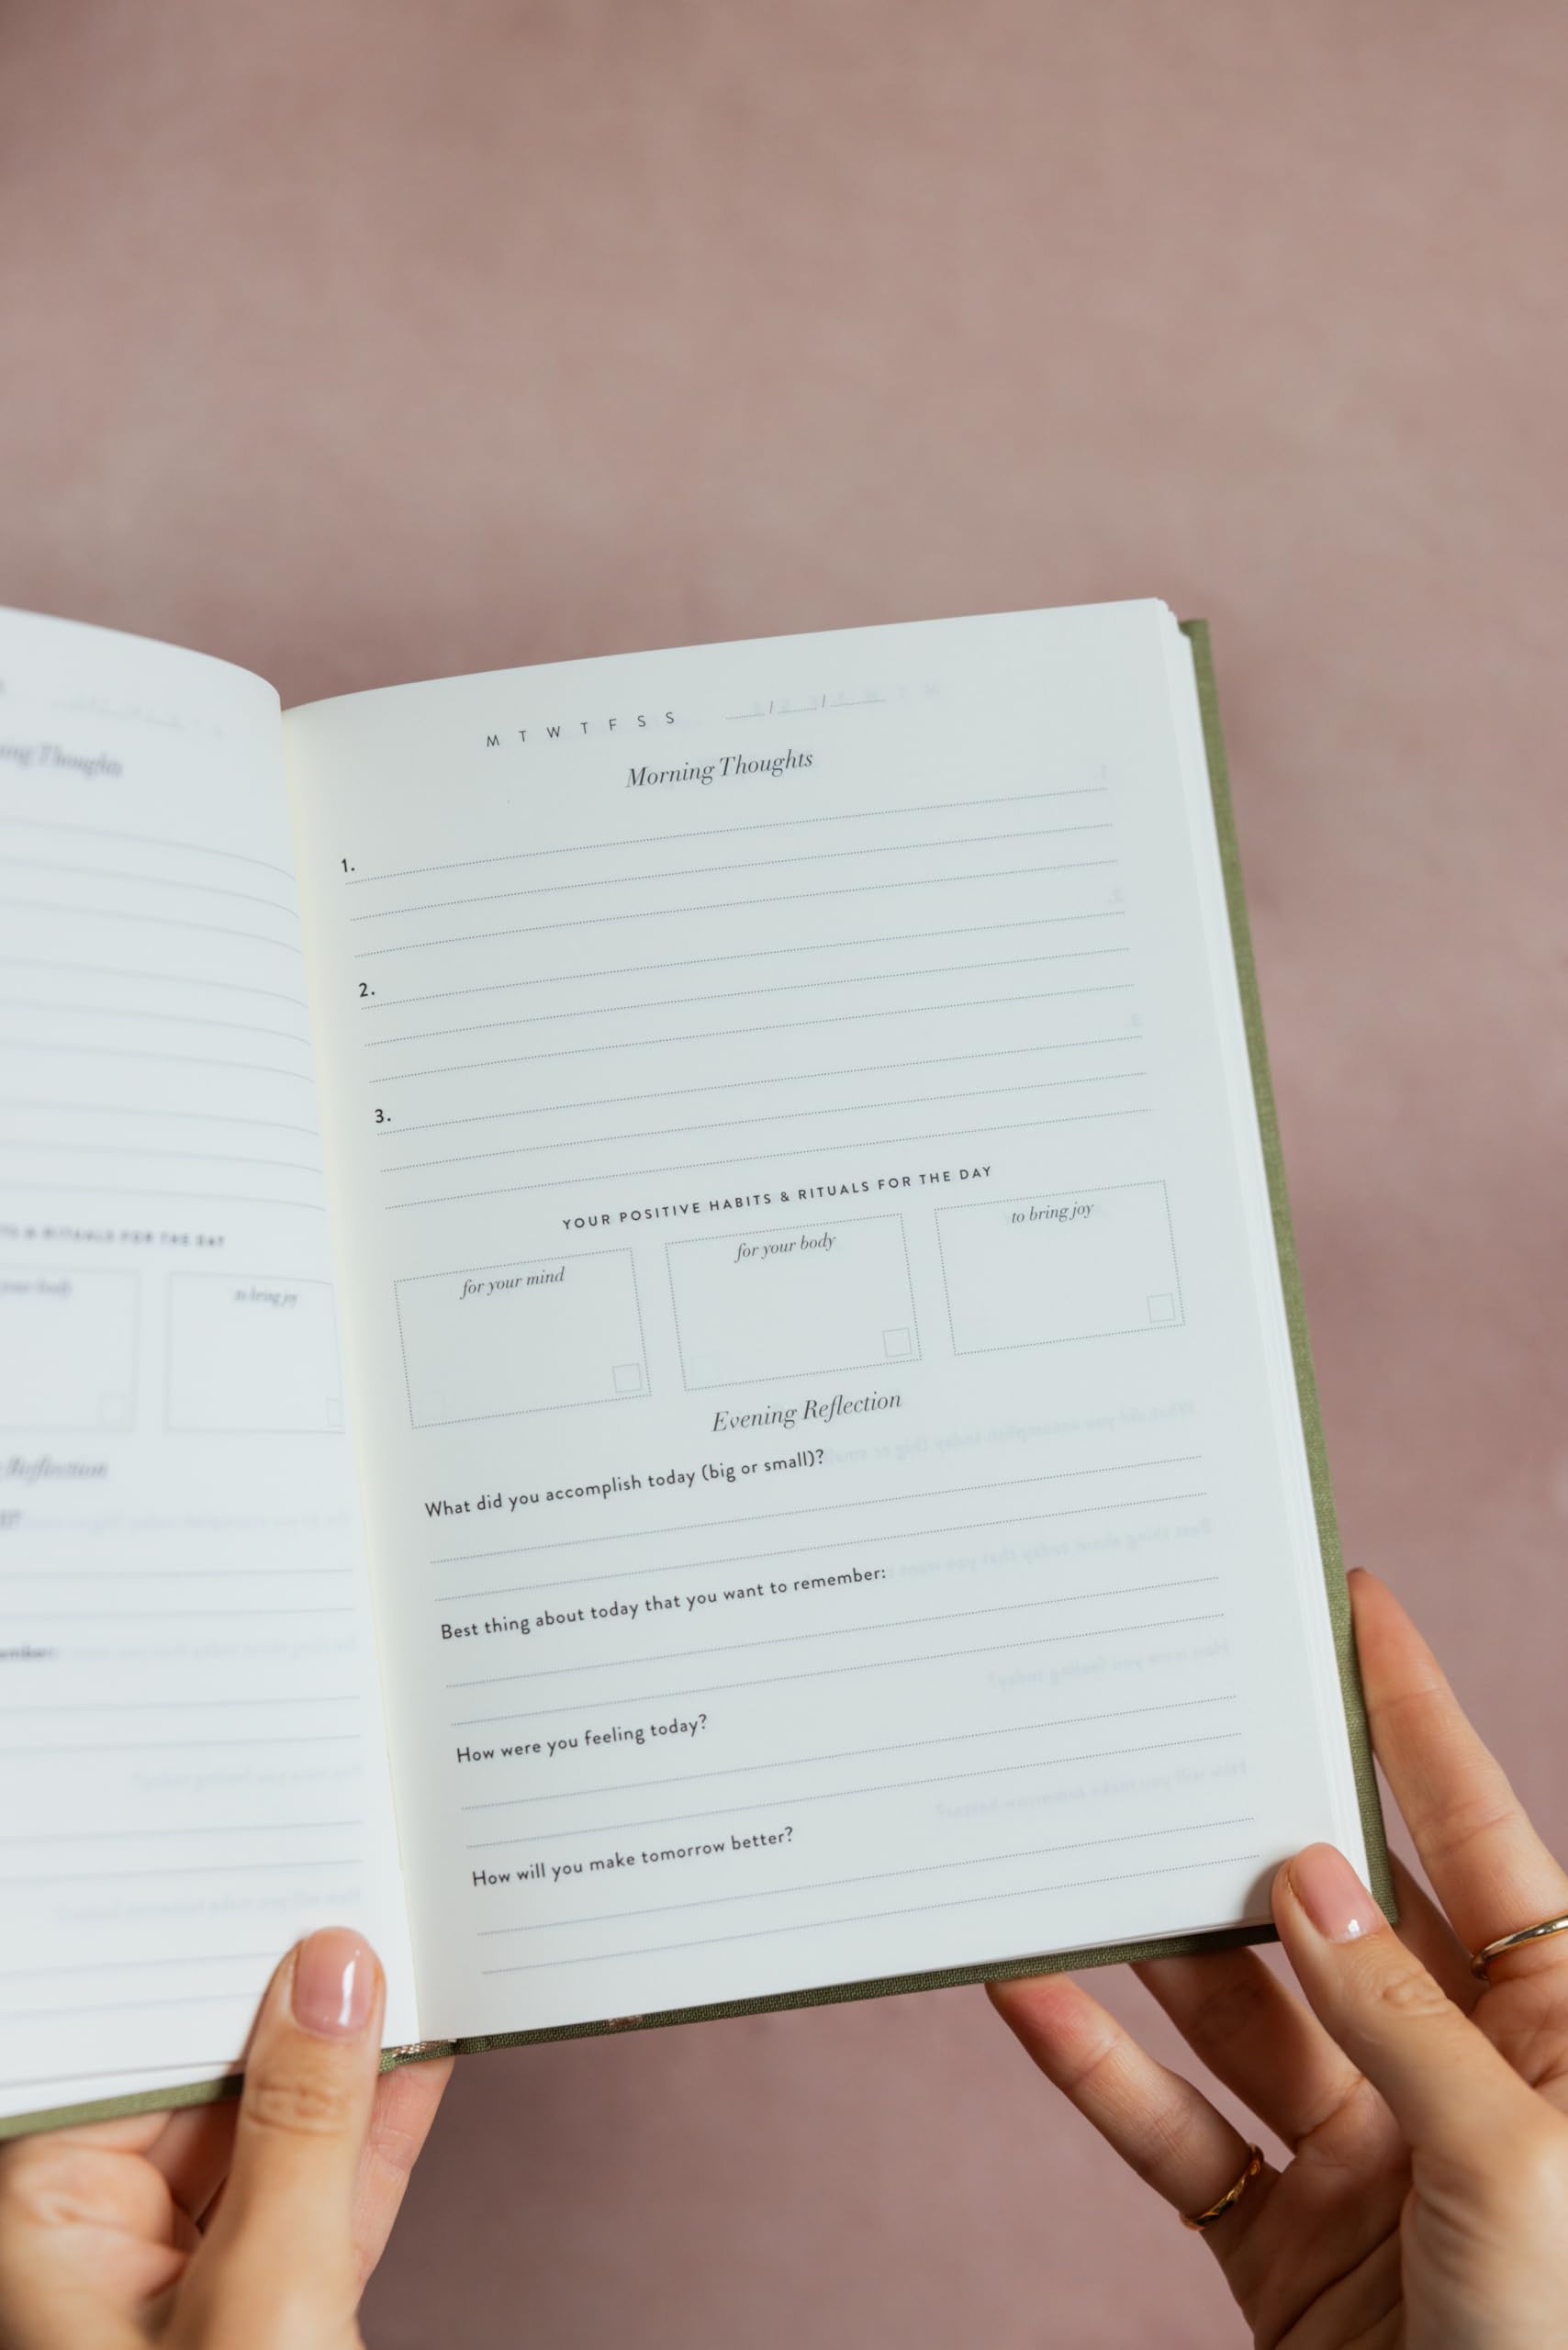 ing Thoughts
& RITUALS FOR THE DAY
your body
to bring joy
Reflection
M T W T F S S   / /
Morning Thoughts
1.
2.
3.
YOUR POSITIVE HABITS & RITUALS FOR THE DAY
for your mind
for your body
to bring joy
Evening Reflection
What did you accomplish today (big or small)?
Best thing about today that you want to remember:
How were you feeling today?
How will you make tomorrow better?